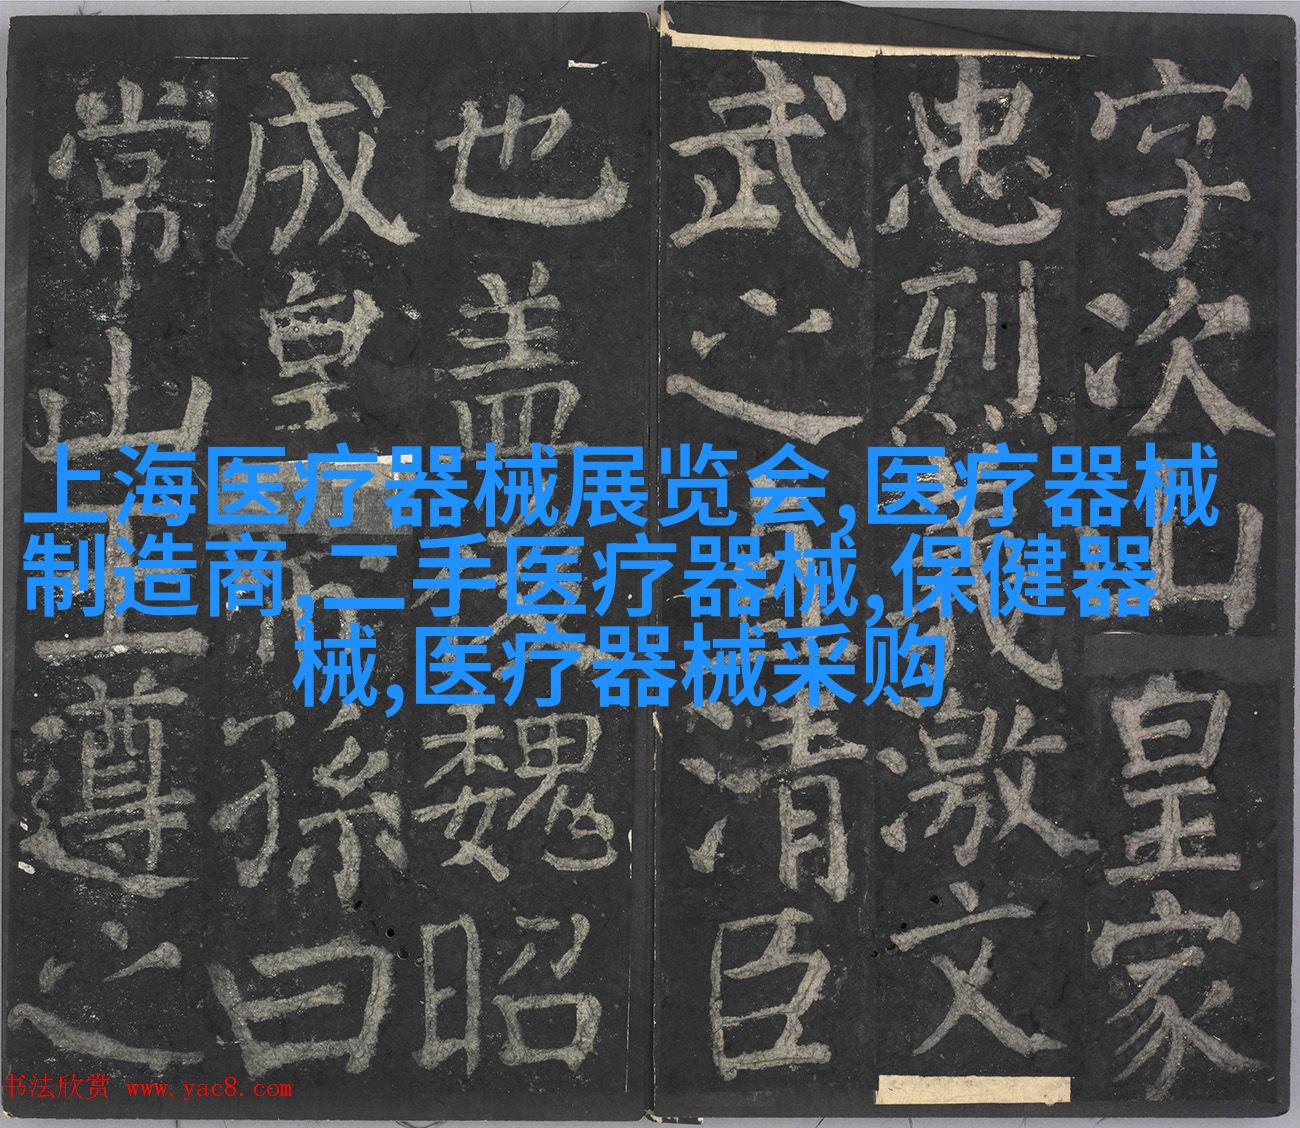 字次山皇家
忠烈義激文
武之清臣
也盖魏昭
成皇帝孫曰
常山王遵之
上海医疗器械展览会,医疗器械
制造商,二手医疗器械,保健器
械,医疗器械采购
书法欣赏 www.yac8.com